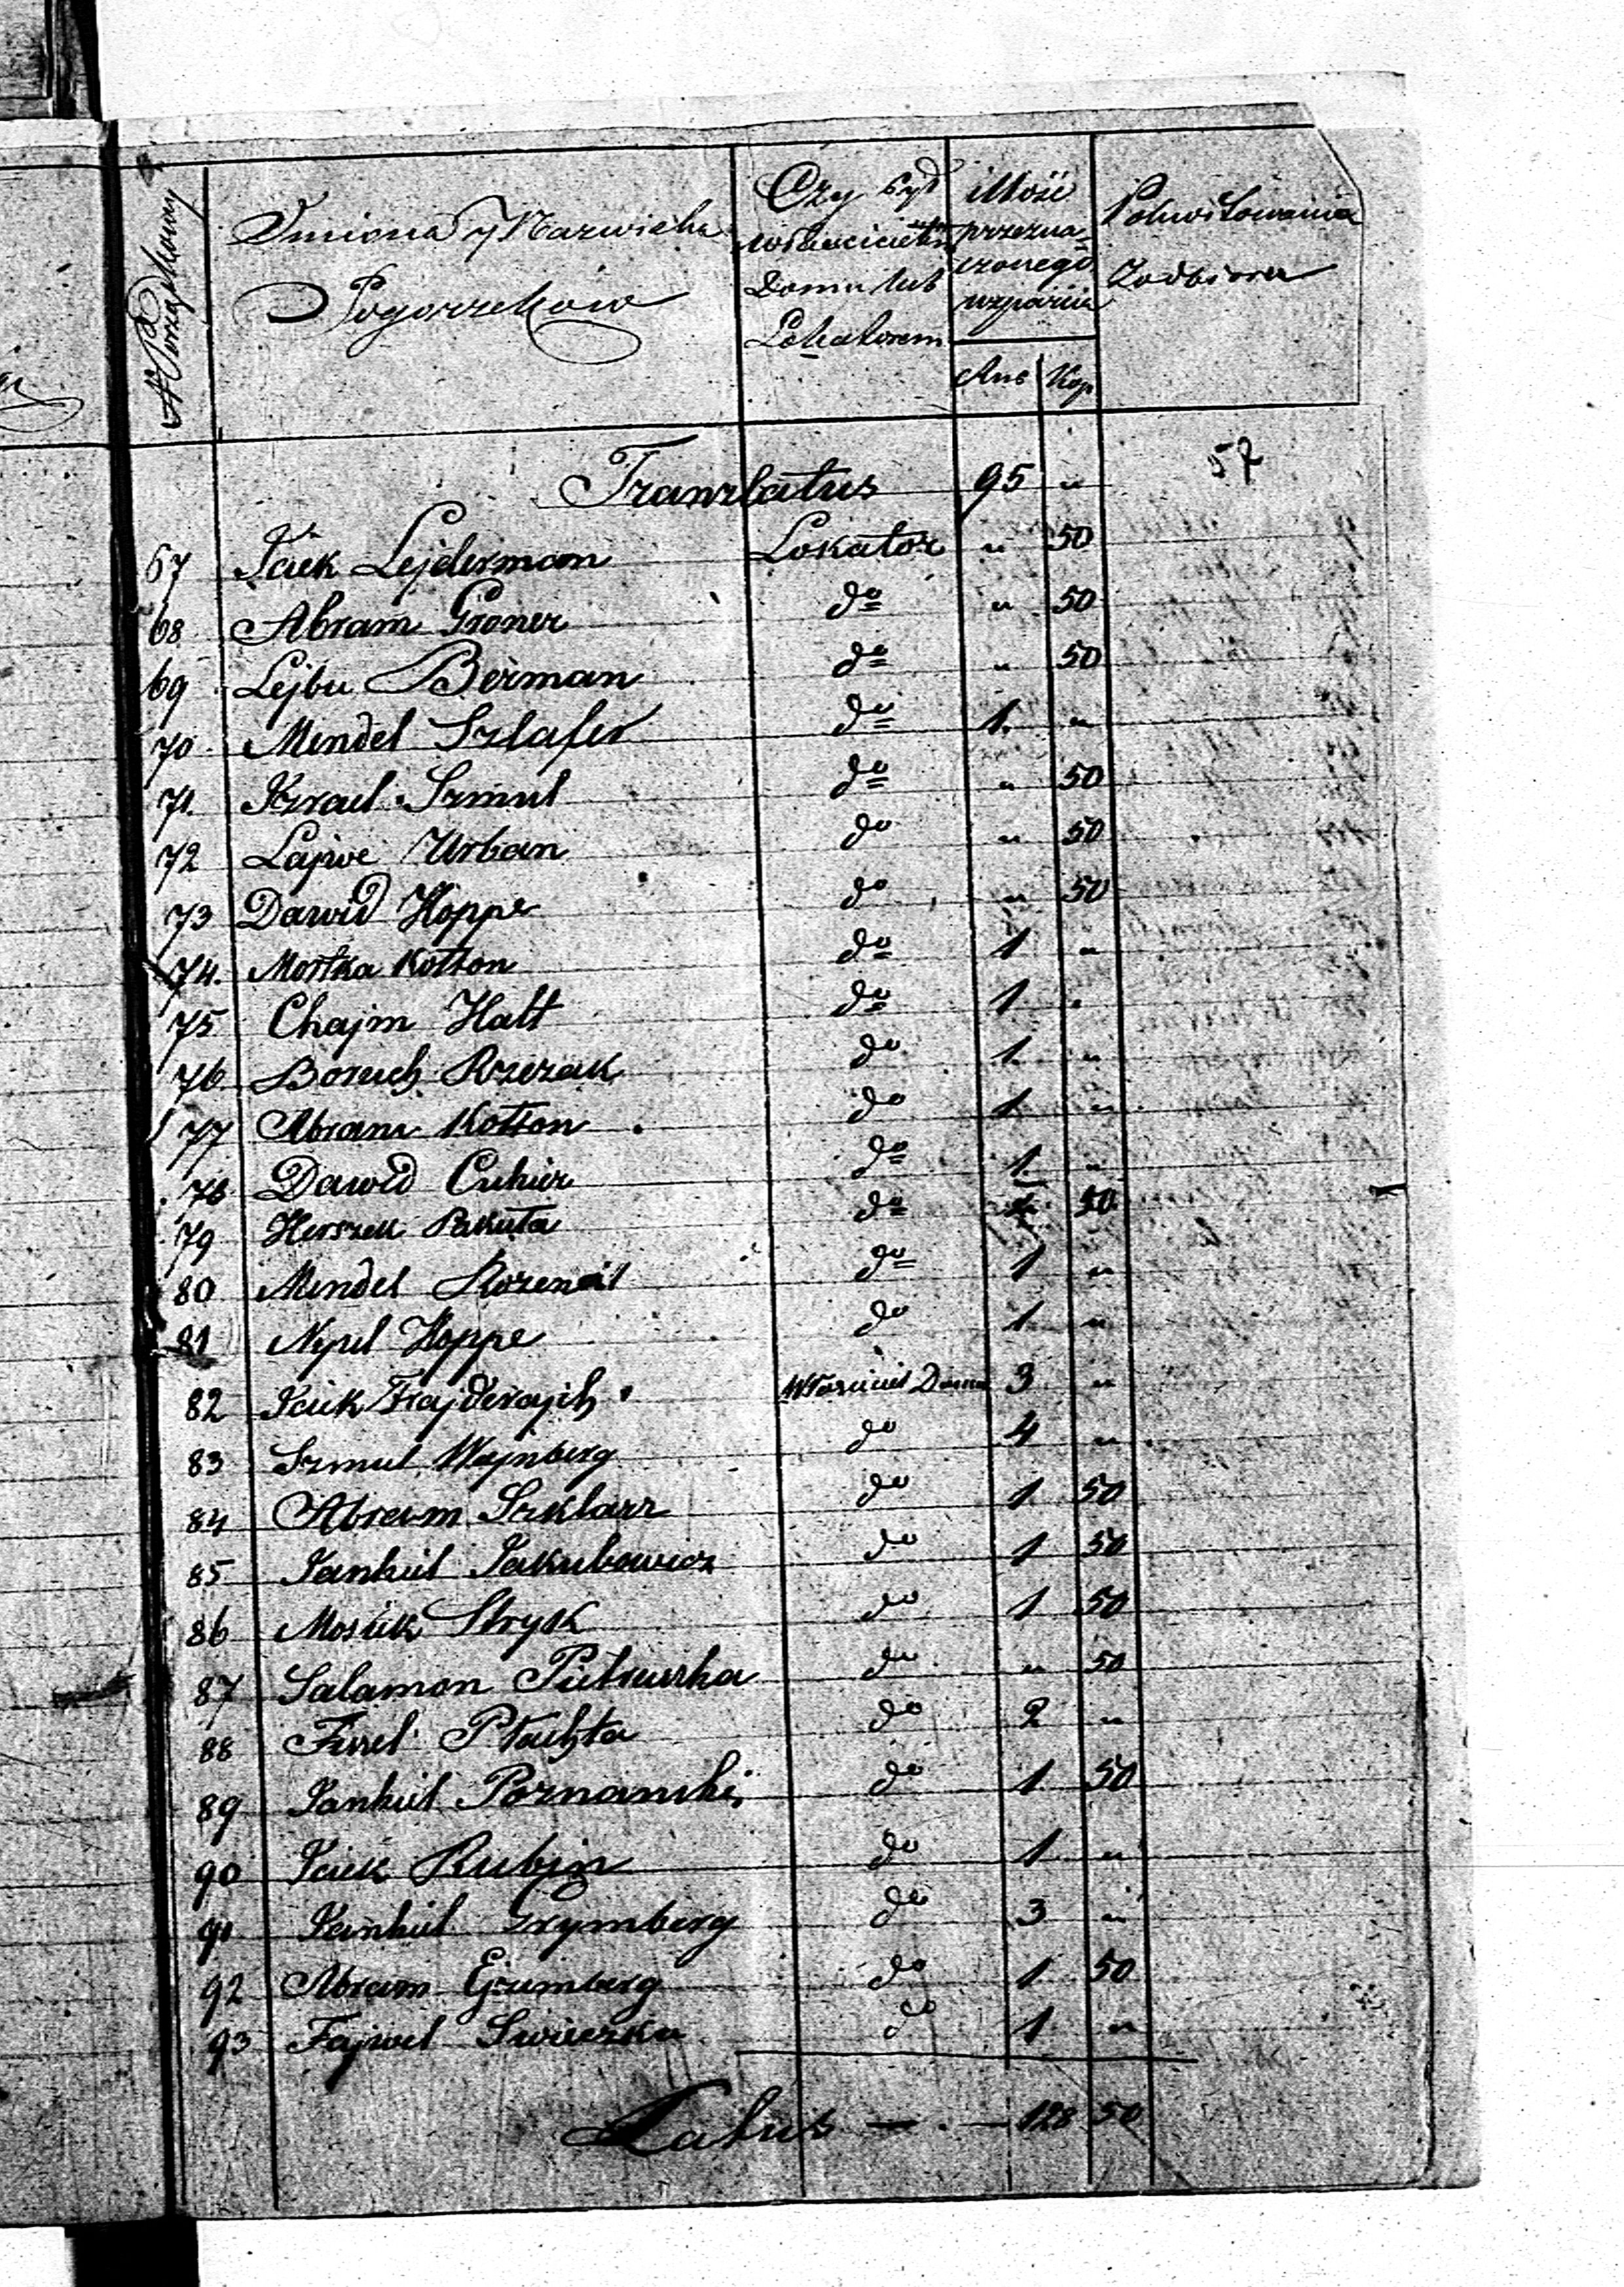 N Porządkowy
Imiona y Nazwiska
Pogorzelców
Czy był
właścicielem
Domu lub
Lokatorem
ilość
przezna-
czonego
wsparcia
Rus Kop
Pokwitowania
Zodbioru
57
Translatus 95 "
67 Icek Lejderman Lokator " 50
68 Abram Groner do " 50
69 Lejbu Berman do " 50
70 Mendel Szlafer do 1. "
71. Izrael Szmul do " 50
72 Lajwe Urban do " 50
73 Dawid Hoppe do " 50
74. Mostka Kotton do 1 "
75 Chajm Halt do 1 "
76 Boruch Rzezak do 1. "
77 Abram Kotton do 1 "
78 Dawid Cukier do 1. "
79 Herszek Pakuta do 50
80 Mendel do 1 "
81 Hoppe do 1 "
82 Icek Frajderajch Właściciel Domu 3 "
83 Szmul Wajnberg do 4 "
84 Abram Szklarz do 1 50
85 Jankiel Jakubowicz do 1 50
86 Mosiek Stryk do 1 50
87 Salamon Pietruszka do " 50
88 Fiszel Płachta do 2 "
89 Jankiel Poznanski do 1 50
90 Icek Rubin do 1 "
91 Jankiel Grymberg do 3 "
92 Abram Grumberg do 1 50
93 Fajwel Swieczka do 1 "
Latus — . — 128 50